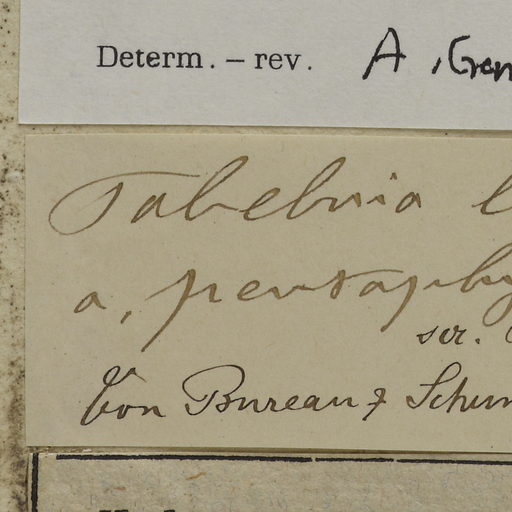 Determ. – rev. A. Gen
Tabebuia l
a, pentaphy
scr.
Von Bureau & Schum